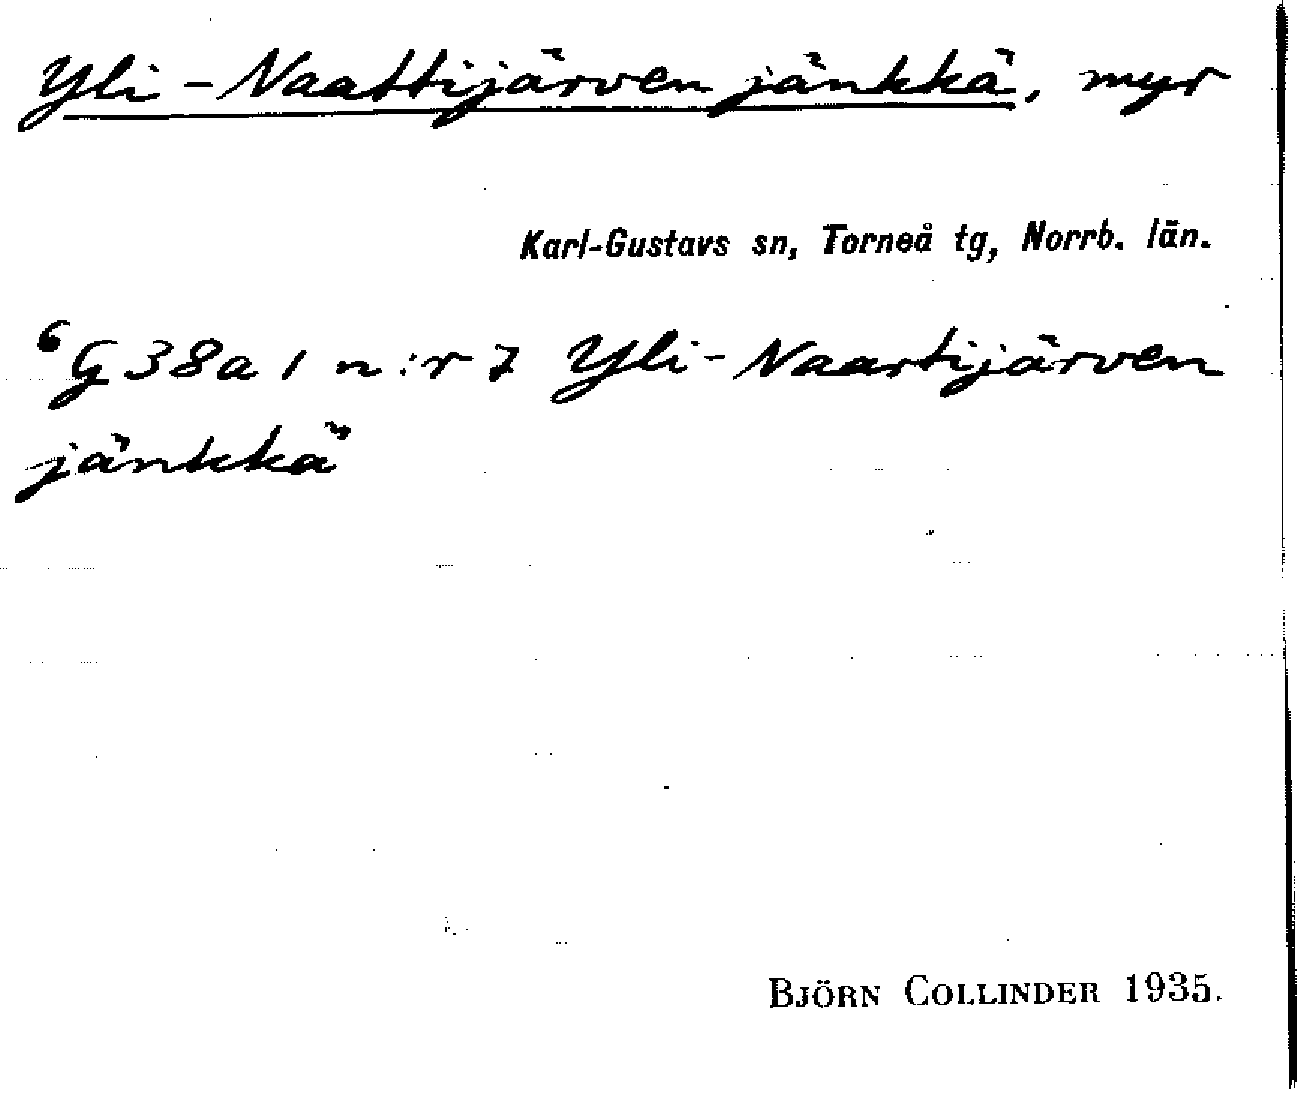 Yli-Naattijärven jänkkä, myr
Karl-Gustavs sn, Torneå tg, Norrb. län.
"G 38a 1 n:r 7 Yli-Naartijärven
jänkkä"
BJÖRN COLLINDER 1935.